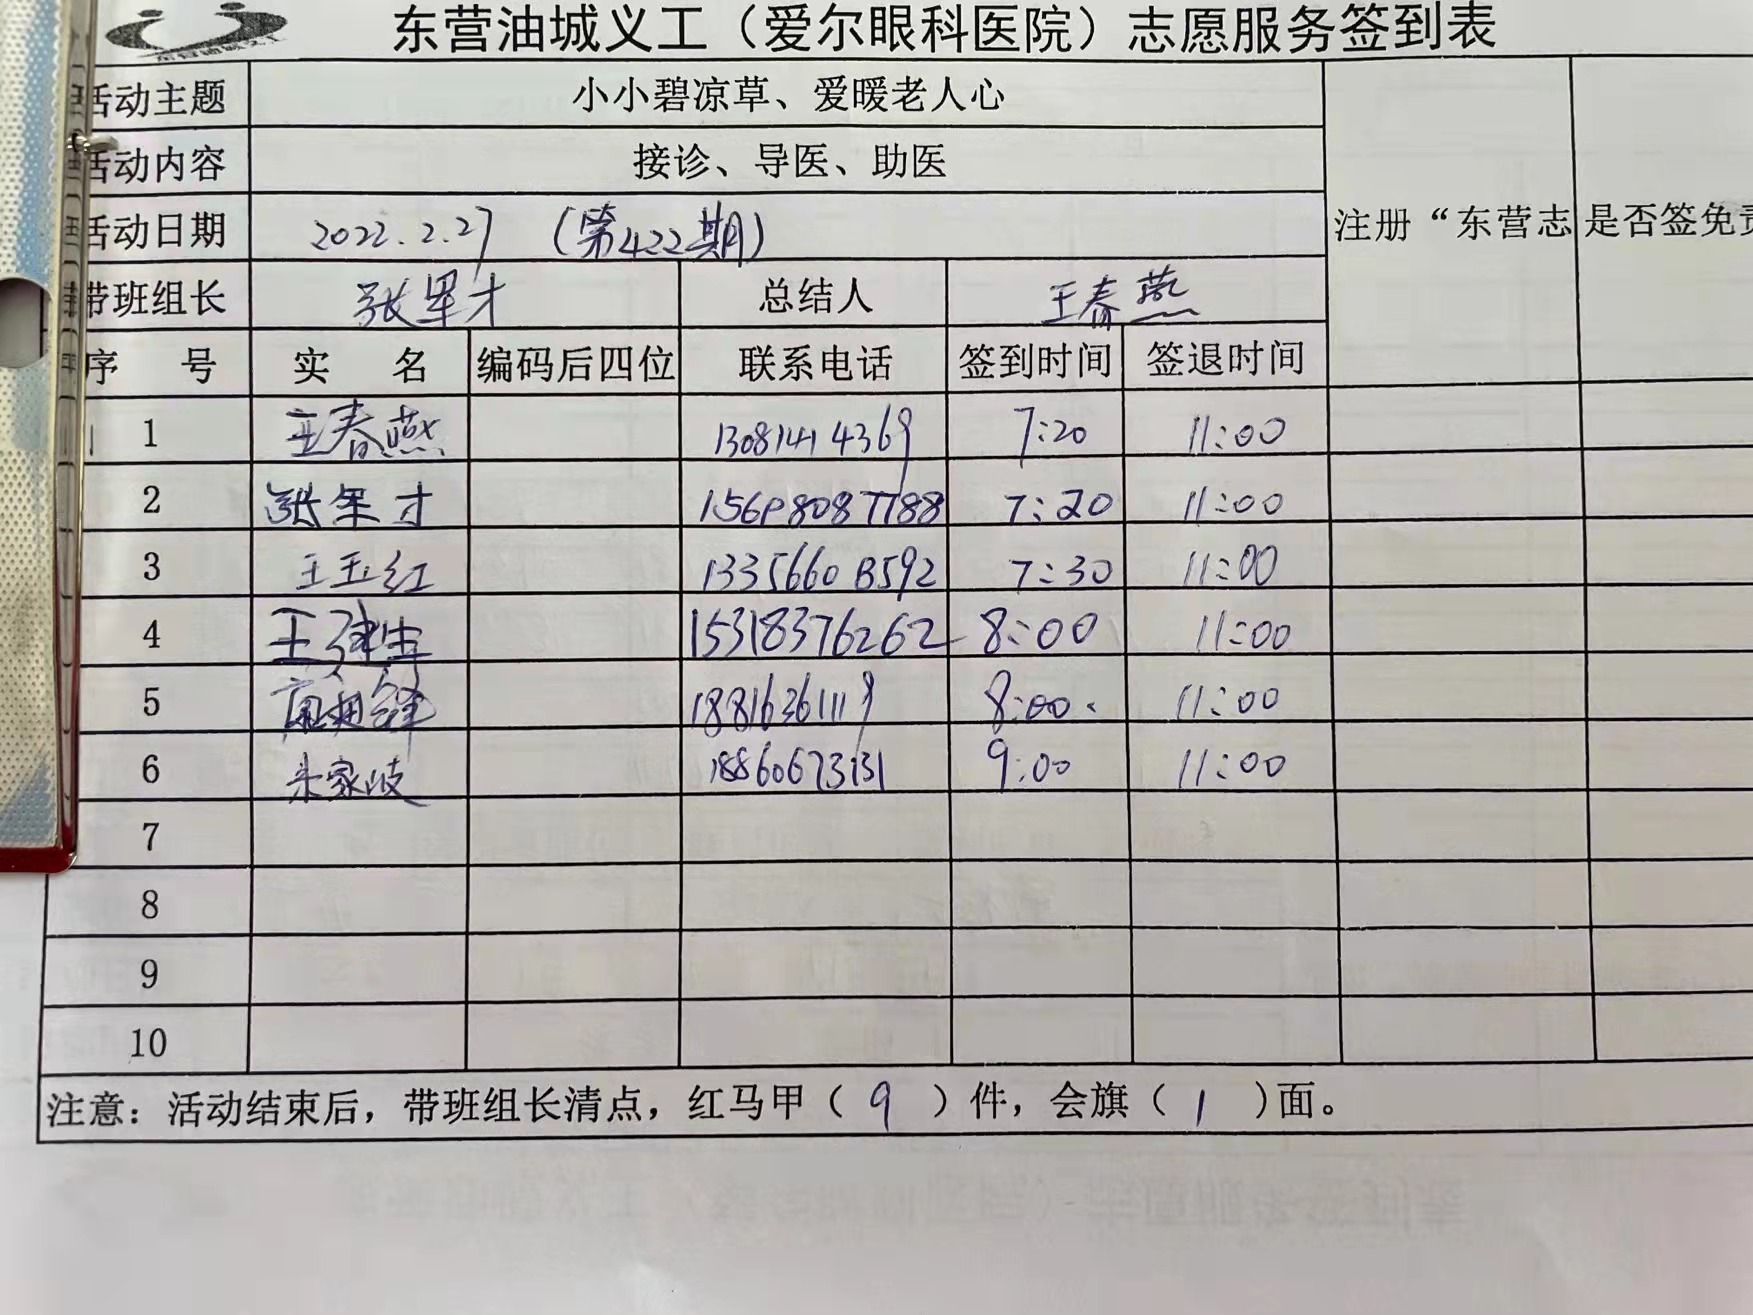 东营油城义工（爱尔眼科医院）志愿服务签到表
活动主题 小小碧凉草、爱暖老人心
活动内容 接诊、导医、助医
活动日期 2022.2.27 （第422期） 注册“东营志 是否签免责
带班组长 张军才 总结人 王春燕
序 号 实 名 编码后四位 联系电话 签到时间 签退时间
1 王春燕 13081414369 7:20 11:00
2 张军才 7:20 11:00
3 王玉红 7:30 11:00
4 15318376262 8:00 11:00
5 18816361119 8:00. 11:00
6 朱家岐 18860673131 9:00 11:00
7
8
9
10
注意：活动结束后，带班组长清点，红马甲（ 9 ）件，会旗（ 1 ）面。